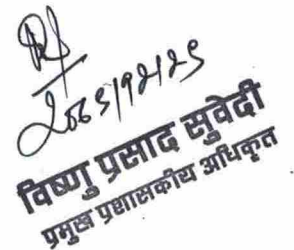 २०८१।१२।२९
विष्णु प्रसाद सुवेदी
प्रमुख प्रशासकीय अधिकृत